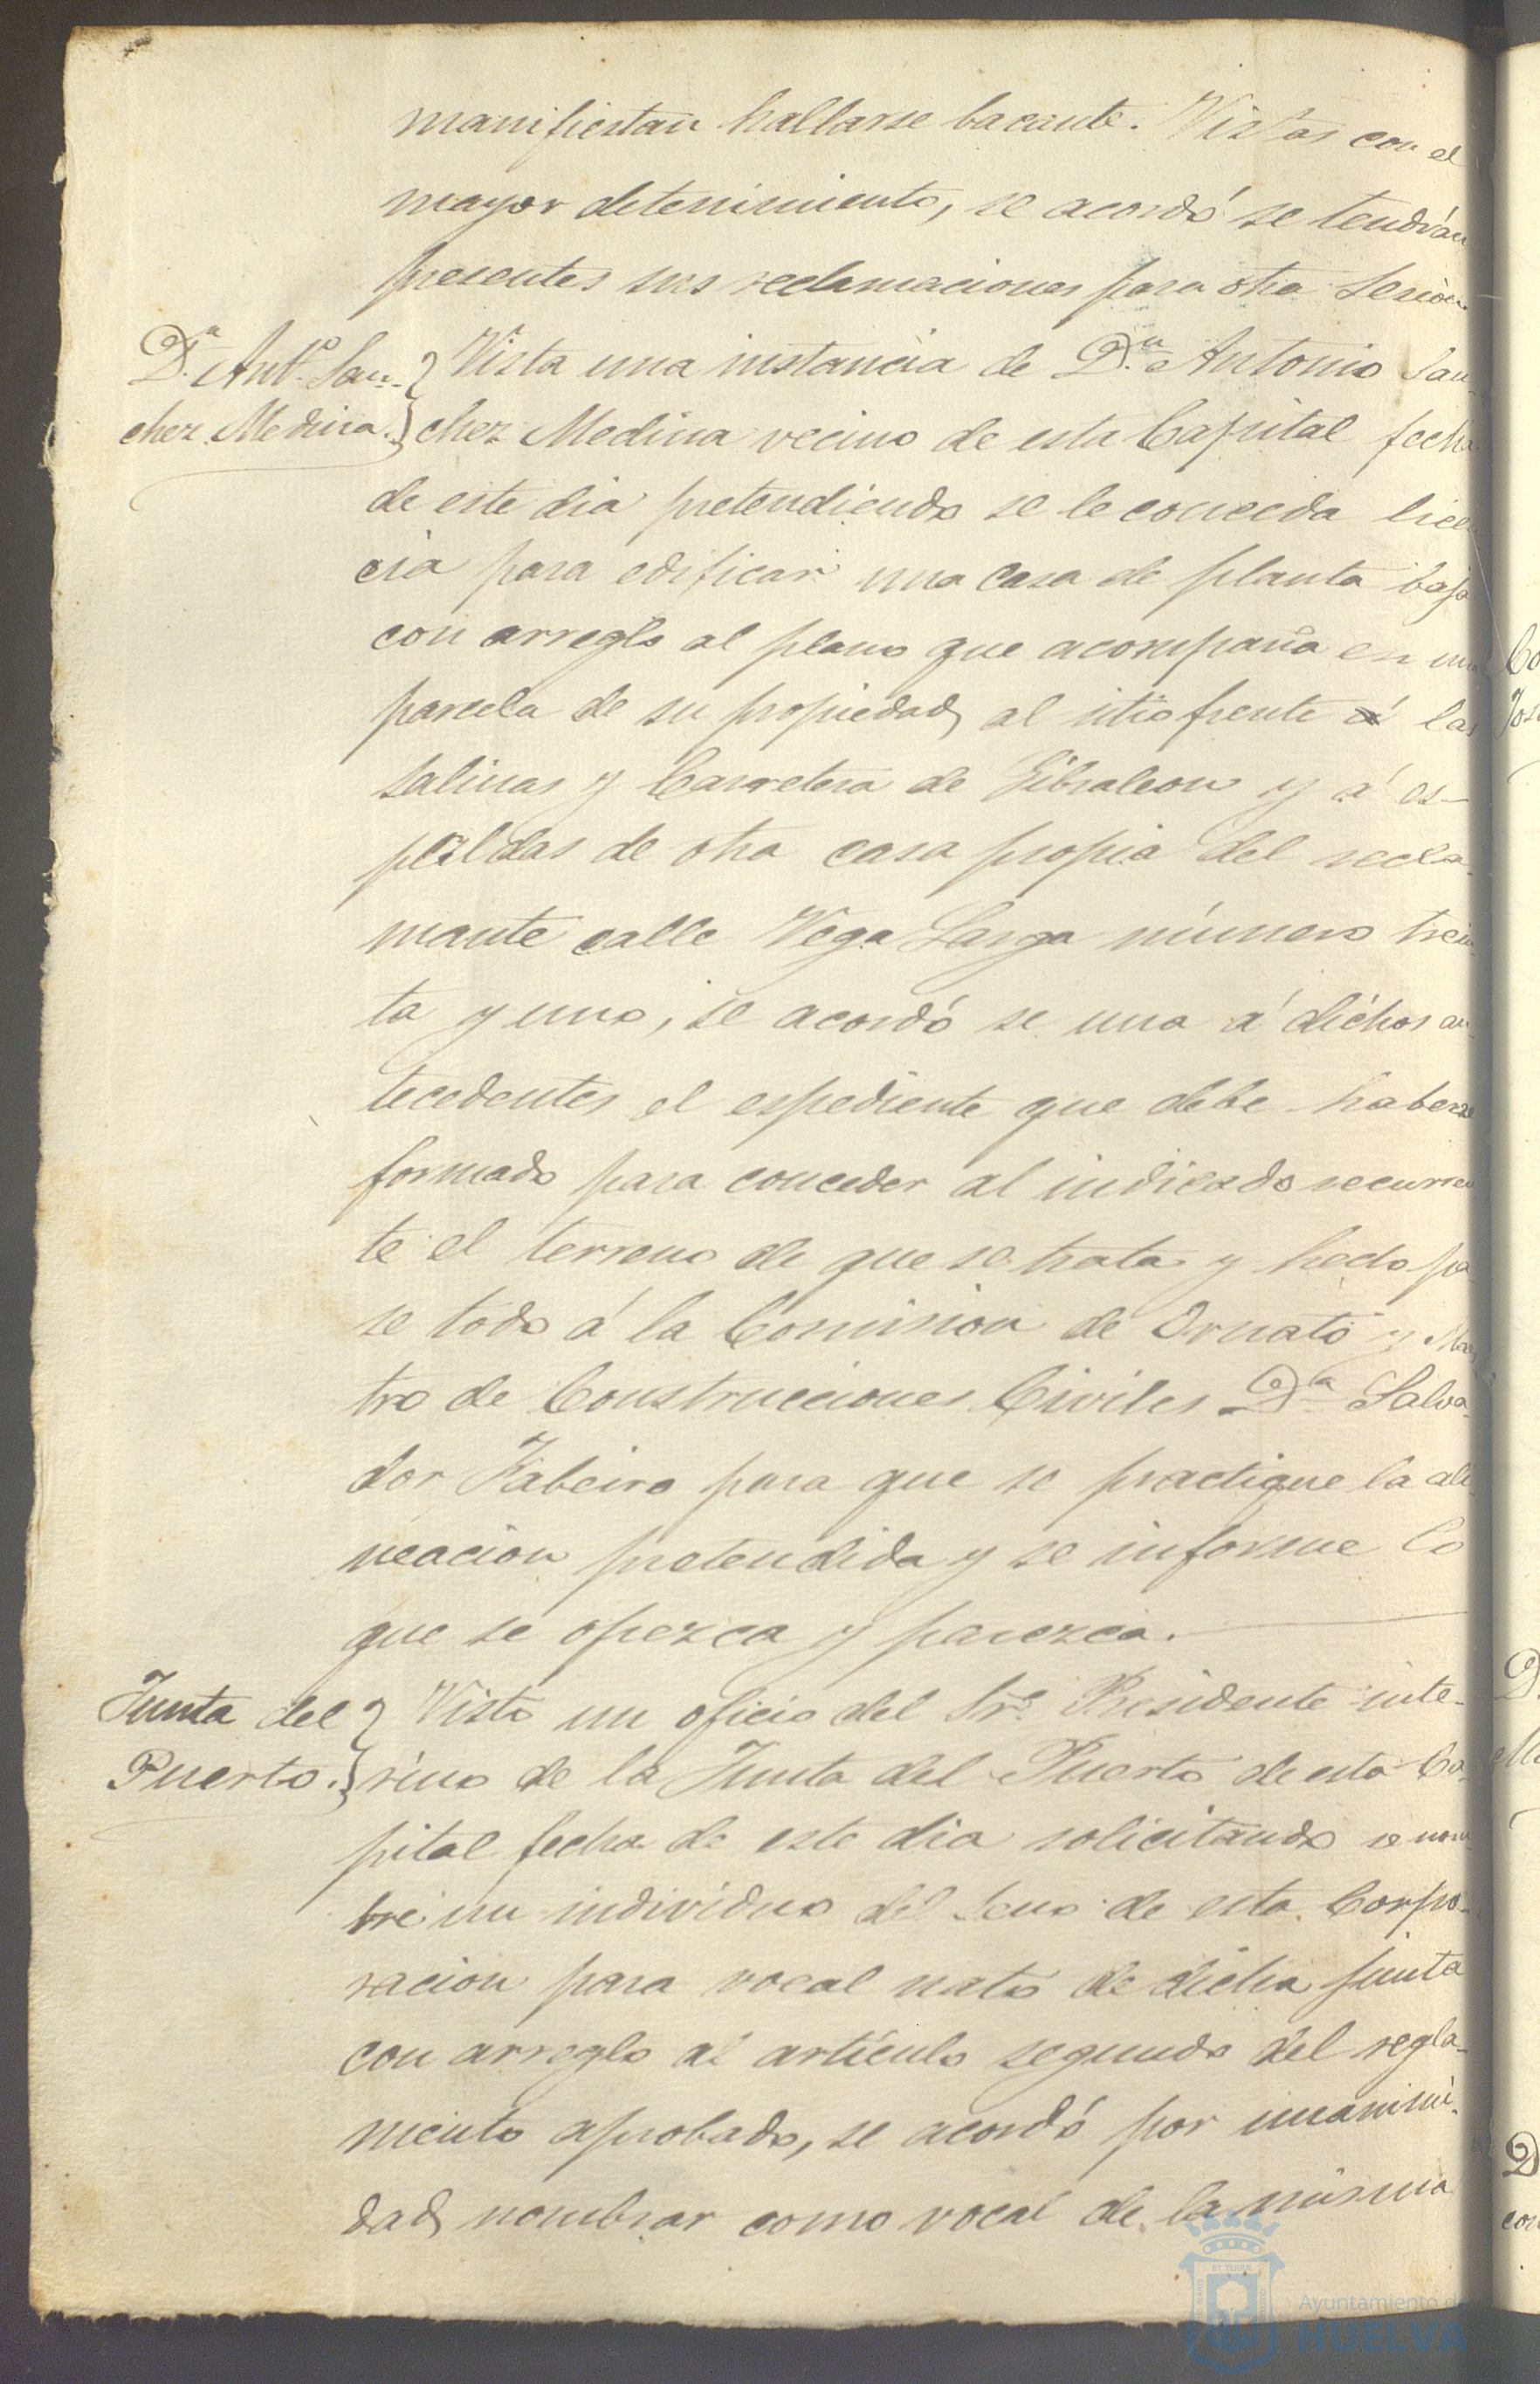 manifiestan hallarse bacante. Vistas con el
mayor detenimiento, se acordó se tendrán
presentes sus reclamaciones para otra sesion.
D.n Ant.o San-
chez Medina.
Vista una instancia de D.n Antonio San-
chez Medina vecino de esta Capital fecha
de este dia pretendiendo se le conceda licen
cia para edificar una casa de planta baja
con arreglo al plano que acompaña en una
parcela de su propiedad, al sitio frente á las
salinas y Carretera de Gibraleon y á es-
paldas de otra casa propia del recla-
mante calle Vega Larga número trein
ta y uno, se acordó se una á dichos an
tecedentes el espediente que debe haberse
formado para conceder al indicado recurren
te el terreno de que se trata y hecho pa
se todo á la Comision de Ornato y Maes
tro de Construcciones Civiles D.n Salva-
dor Fabeiro para que se practique la ali
neacion pretendida y se informe lo
que se ofrezca y parezca.
Junta del
Puerto.
Visto un oficio del Sr. Presidente inte-
rino de la Junta del Puerto de esta Ca-
pital fecha de este dia solicitando se nom
bre un individuo del seno de esta Corpo-
racion para vocal nato de dicha junta
con arreglo al artículo segundo del regla-
mento aprobado, se acordó por unanimi-
dad, nombrar como vocal de la misma
Ayuntamiento de
HUELVA